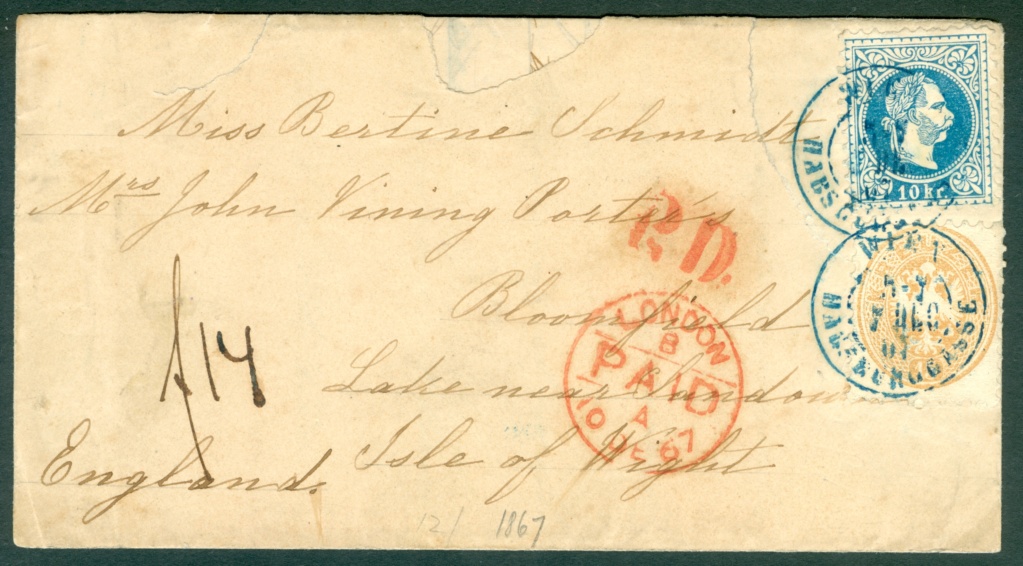 Miss Bertine Schmidt
Mrs John Vining Porter's
Bloomfield
Lake near Sandown
Isle of Wight
England.
P.D.
LONDON
B
PAID
A
10 DE 67
14
10 kr.
WIEN
HABSBURGGASSE
WIEN
DEC.
67
HABSBURGGASSE
12/ 1867